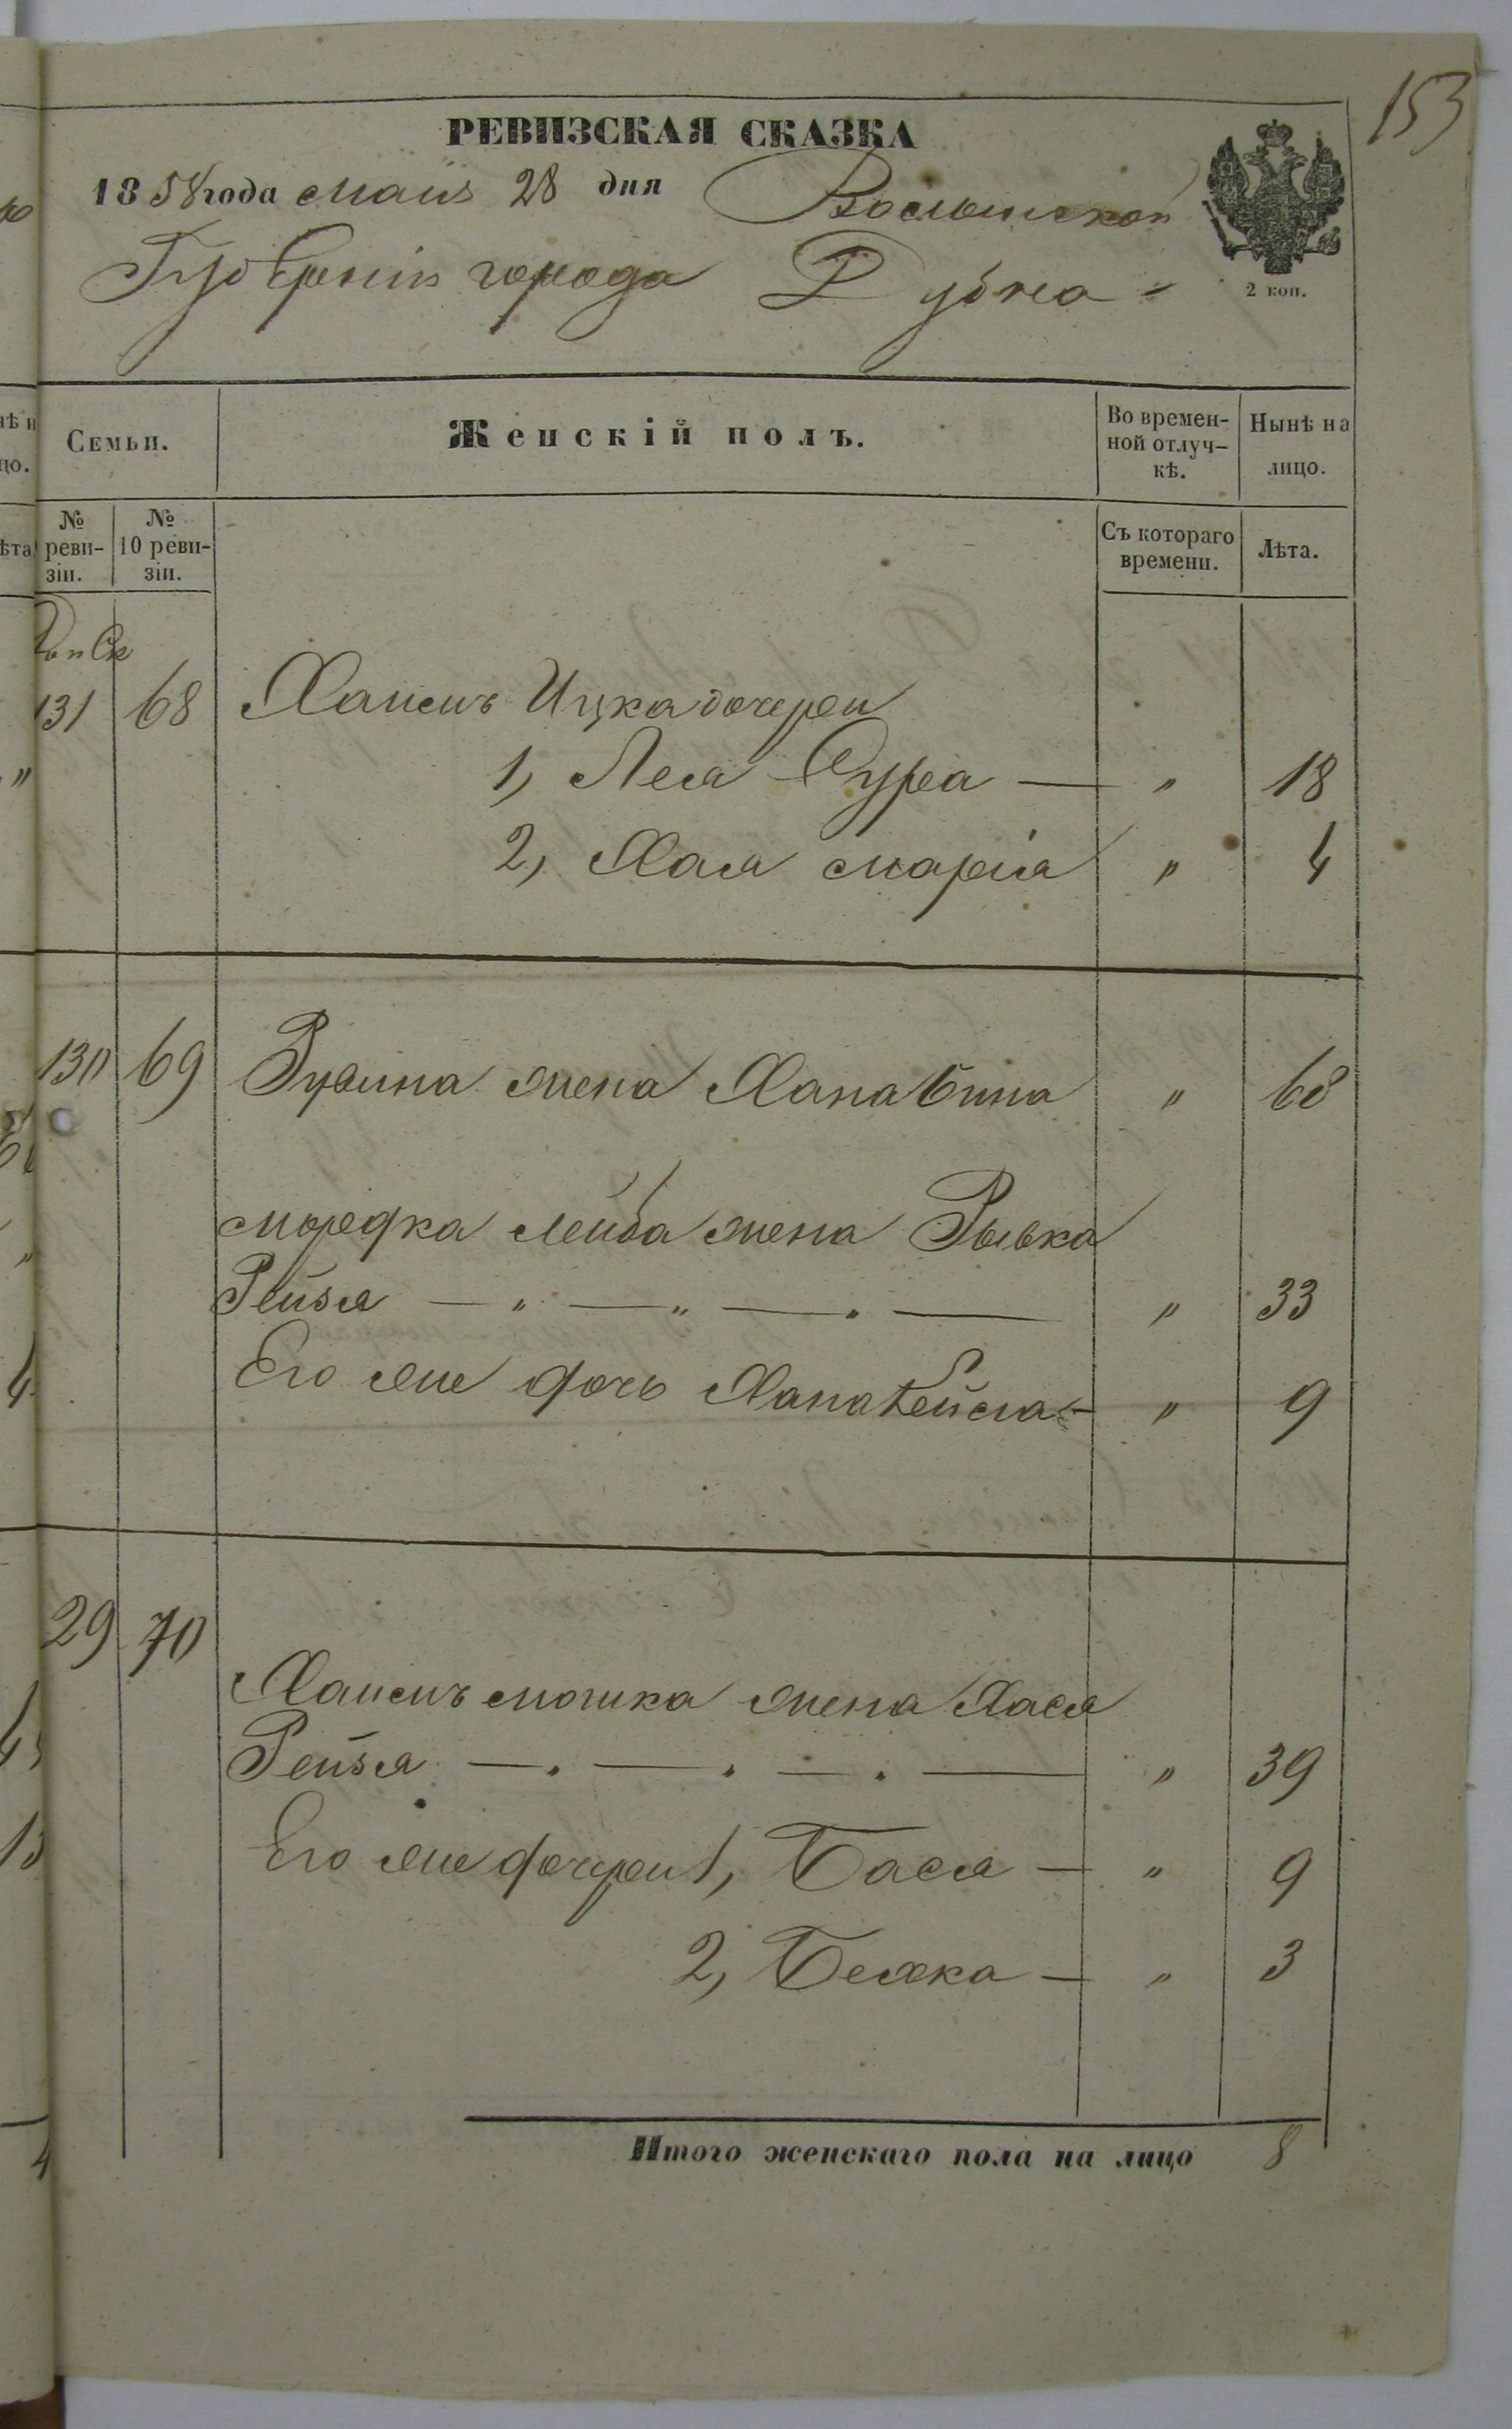 153
РЕВИЗСКАЯ СКАЗКА
1858 года Маія 28 дня Волынской
Губерніи города Дубна
2 коп.
Семьи.
Женскій полъ.
Во времен-
ной отлуч-
кѣ.
Нынѣ на
лицо.
№
реви-
зіи.
№
10 реви-
зіи.
Съ котораго
времени.
Лѣта.
131 68 Хаимъ Ицка дочери
1, Лея Сура — " 18
2, Хая Марія " 4
130 69 Рувина жена Хана Бина " 68
Мордка Лейба жена Рывка
Рейзя — " — " — . — " 33
Его же дочь Хана Бейла — " 9
29 70
Хаимъ Мошка жена Хася
Рейзя — . — . — . — " 39
Его же дочери 1, Бася — " 9
2, Белка — " 3
Итого женскаго пола на лицо 8